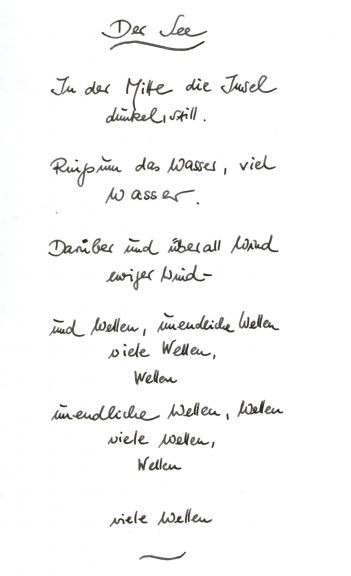 Der See
In der Mitte die Insel
dunkel, still.
Ringsum das Wasser, viel
Wasser.
Darüber und überall Wind
ewiger Wind-
und Wellen, unendliche Wellen
viele Wellen,
Wellen
unendliche Wellen, Wellen
viele Wellen,
Wellen
viele Wellen